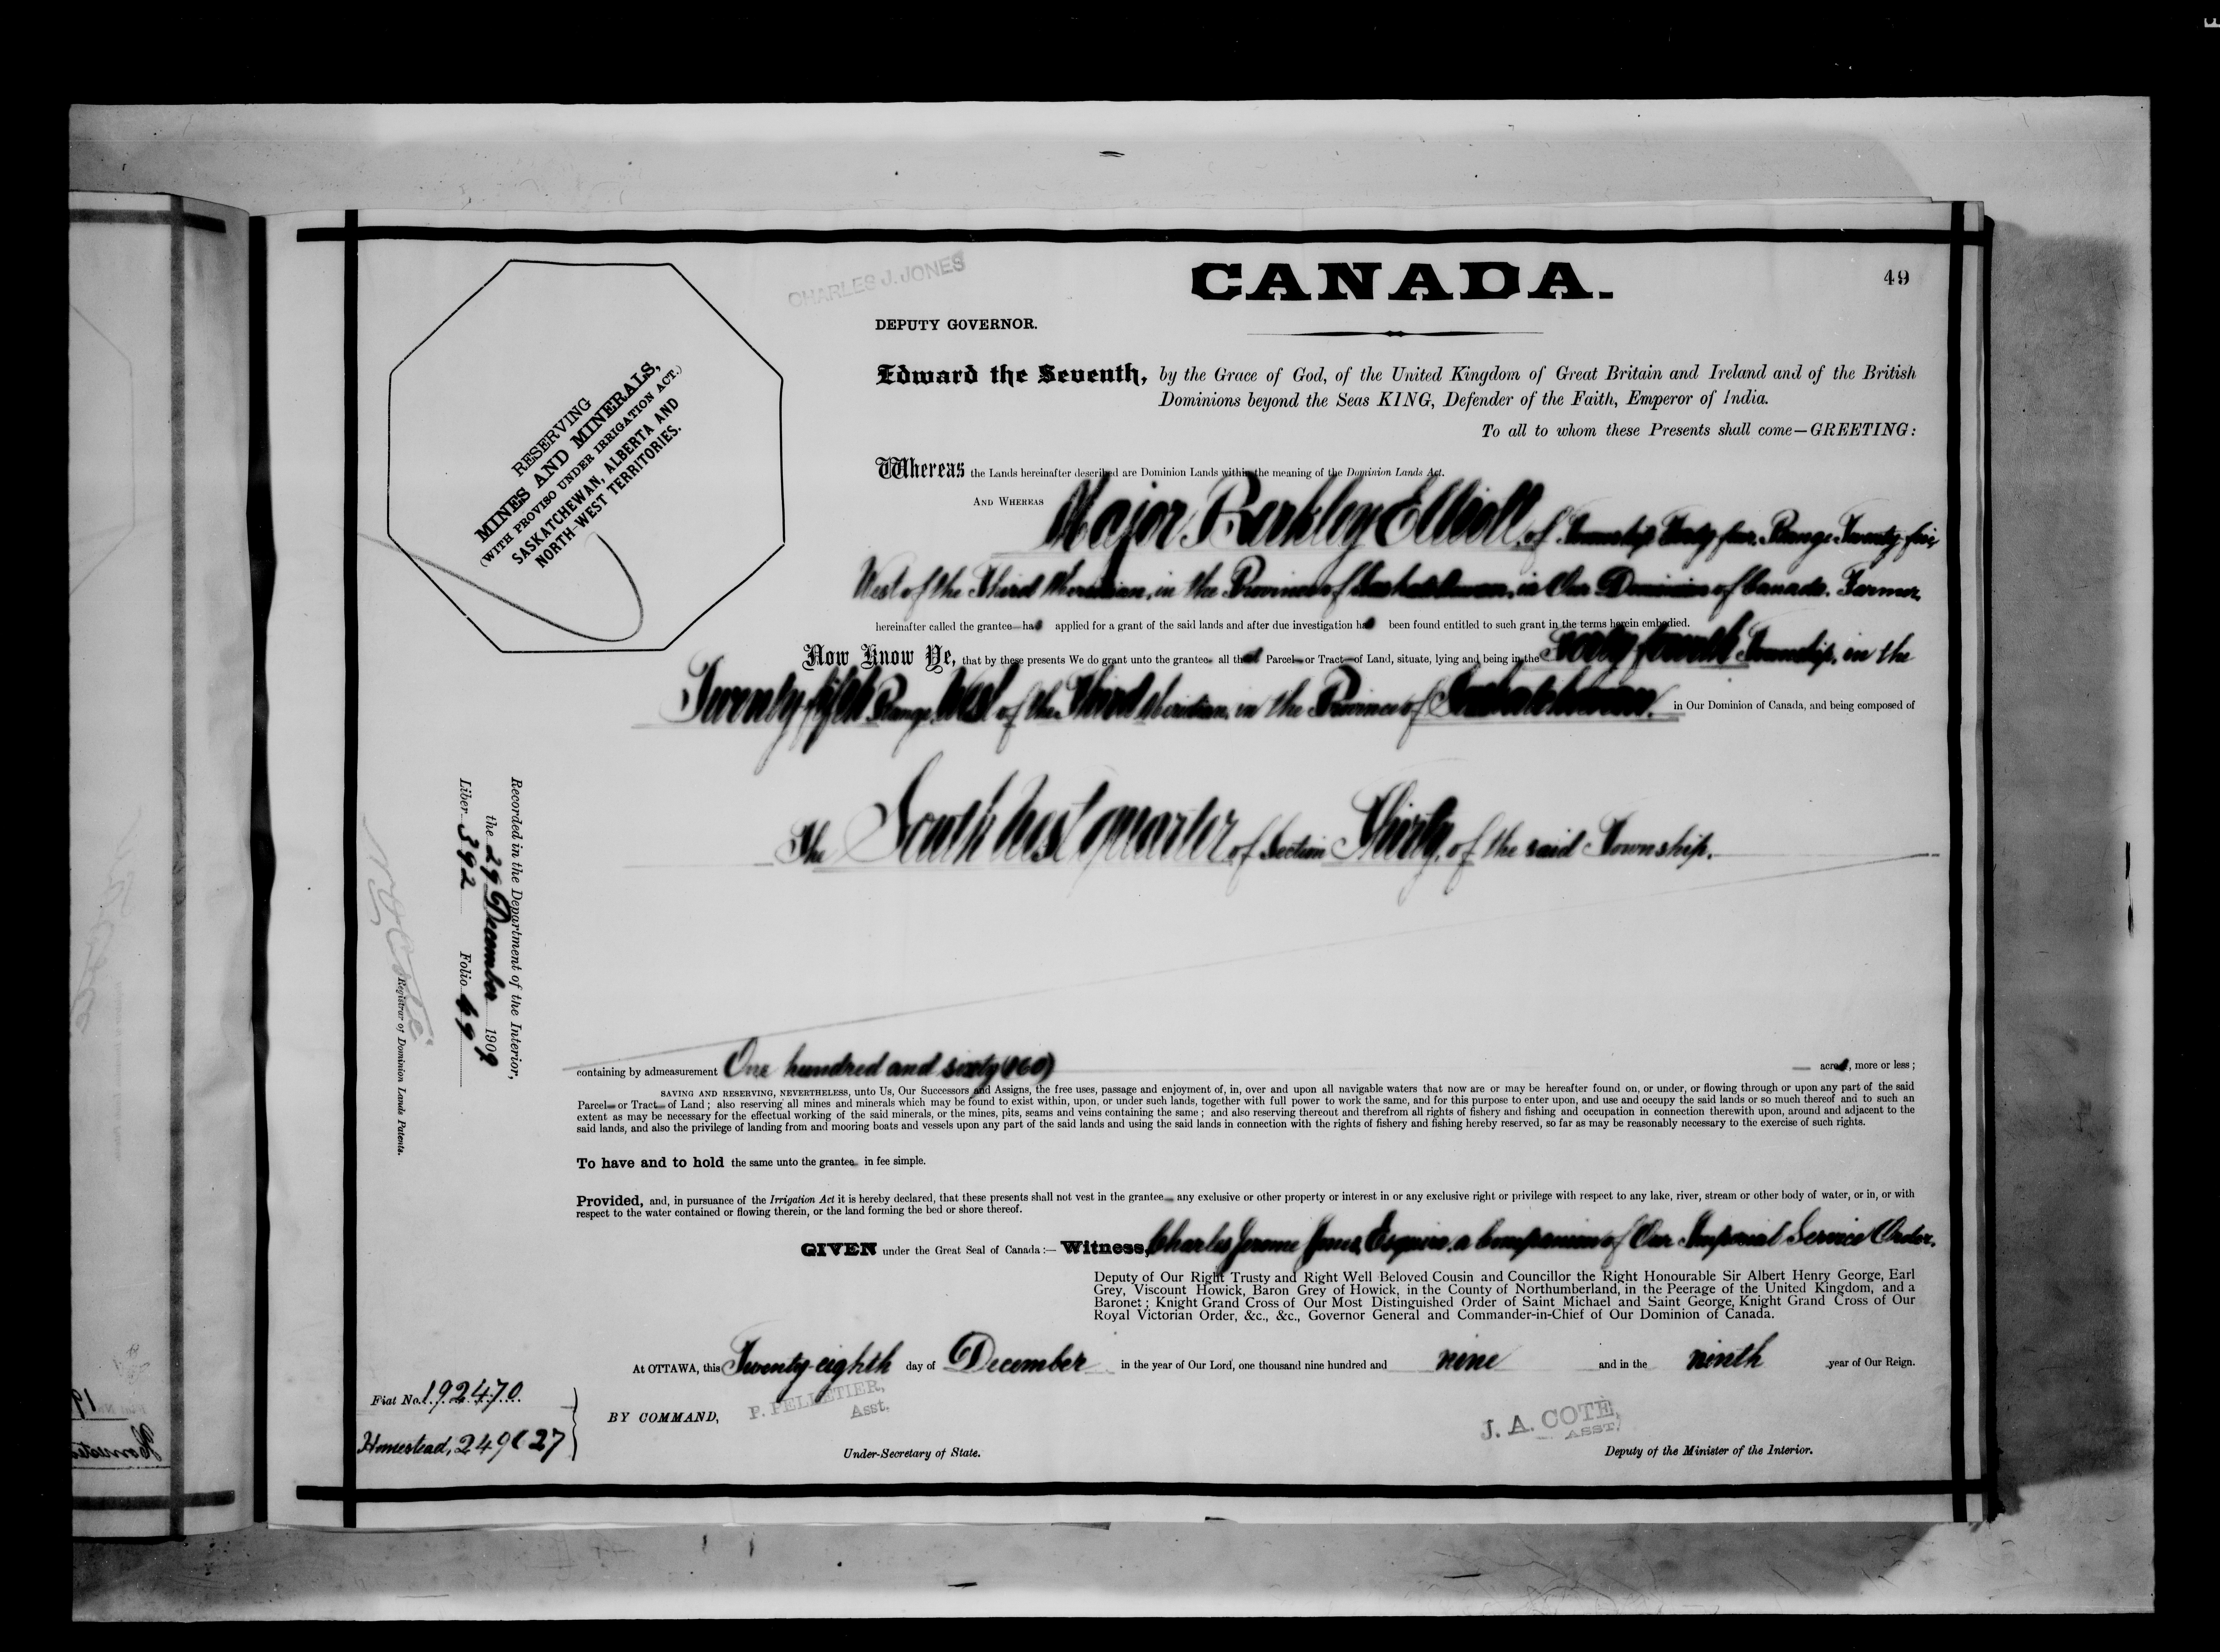 CHARLES J. JONES
CANADA.
49
DEPUTY GOVERNOR.
Edward the Seventh, by the Grace of God, of the United Kingdom of Great Britain and Ireland and of the British
Dominions beyond the Seas KING, Defender of the Faith, Emperor of India.
To all to whom these Presents shall come—GREETING:
RESERVING
MINES AND MINERALS,
(WITH PROVISO UNDER IRRIGATION ACT.)
SASKATCHEWAN, ALBERTA AND
NORTH-WEST TERRITORIES.
Whereas the Lands hereinafter described are Dominion Lands within the meaning of the Dominion Lands Act.
AND WHEREAS Major Berkley Elliott, of Township Forty four, Range Twenty five
West of the Third Meridian, in the Province of Saskatchewan, in Our Dominion of Canada, Farmer,
hereinafter called the grantee has applied for a grant of the said lands and after due investigation has been found entitled to such grant in the terms herein embodied.
Now Know Ye, that by these presents We do grant unto the grantee all that Parcel or Tract of Land, situate, lying and being in the Forty fourth Township, in the
Twenty-fifth Range, West of the Third Meridian, in the Province of Saskatchewan, in Our Dominion of Canada, and being composed of
The South West quarter of Section Thirty, of the said Township.
Recorded in the Department of the Interior,
the 29 December 1909
Liber 392 Folio 49
Registrar of Dominion Lands Patents.
containing by admeasurement One hundred and sixty (160) acres, more or less;
SAVING AND RESERVING, NEVERTHELESS, unto Us, Our Successors and Assigns, the free uses, passage and enjoyment of, in, over and upon all navigable waters that now are or may be hereafter found on, or under, or flowing through or upon any part of the said
Parcel or Tract of Land; also reserving all mines and minerals which may be found to exist within, upon, or under such lands, together with full power to work the same, and for this purpose to enter upon, and use and occupy the said lands or so much thereof and to such an
extent as may be necessary for the effectual working of the said minerals, or the mines, pits, seams and veins containing the same; and also reserving thereout and therefrom all rights of fishery and fishing and occupation in connection therewith upon, around and adjacent to the
said lands, and also the privilege of landing from and mooring boats and vessels upon any part of the said lands and using the said lands in connection with the rights of fishery and fishing hereby reserved, so far as may be reasonably necessary to the exercise of such rights.
To have and to hold the same unto the grantee in fee simple.
Provided, and, in pursuance of the Irrigation Act it is hereby declared, that these presents shall not vest in the grantee any exclusive or other property or interest in or any exclusive right or privilege with respect to any lake, river, stream or other body of water, or in, or with
respect to the water contained or flowing therein, or the land forming the bed or shore thereof.
GIVEN under the Great Seal of Canada:— Witness, Charles Jerome Jones, Esquire, a Companion of Our Imperial Service Order,
Deputy of Our Right Trusty and Right Well Beloved Cousin and Councillor the Right Honourable Sir Albert Henry George, Earl
Grey, Viscount Howick, Baron Grey of Howick, in the County of Northumberland, in the Peerage of the United Kingdom, and a
Baronet; Knight Grand Cross of Our Most Distinguished Order of Saint Michael and Saint George, Knight Grand Cross of Our
Royal Victorian Order, &c., &c., Governor General and Commander-in-Chief of Our Dominion of Canada.
At OTTAWA, this Twenty-eighth day of December in the year of Our Lord, one thousand nine hundred and nine and in the ninth year of Our Reign.
Fiat No. 192470
Homestead, 249
BY COMMAND,
P. PELLETIER,
Asst.
Under-Secretary of State.
J. A. COTE,
ASST.
Deputy of the Minister of the Interior.